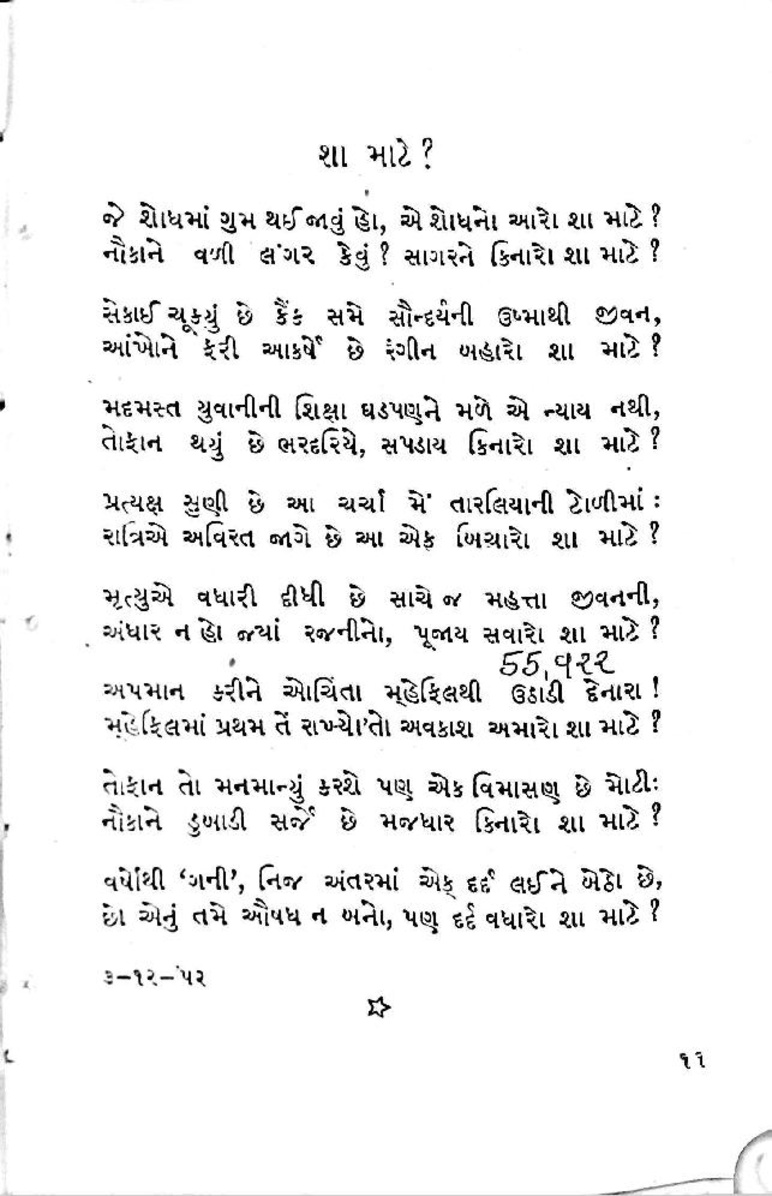 શા માટે ?
જે શોધમાં ગુમ થઈ જાવું હો, એ શોધનો આરો શા માટે ?
નૌકાને વળી લંગર કેવું ? સાગરને કિનારો શા માટે ?
સેકાઈ ચૂક્યું છે કૈંક સમે સૌન્દર્યની ઉષ્માથી જીવન,
આંખોને ફરી આકર્ષે છે રંગીન બહારો શા માટે ?
મદમસ્ત યુવાનીની શિક્ષા ઘડપણને મળે એ ન્યાય નથી,
તોફાન થયું છે ભરદરિયે, સપડાય કિનારો શા માટે ?
પ્રત્યક્ષ સુણી છે આ ચર્ચા મેં તારલિયાની ટોળીમાં :
રાત્રિએ અવિરત જાગે છે આ એક બિચારો શા માટે ?
મૃત્યુએ વધારી દીધી છે સાચે જ મહત્તા જીવનની,
અંધાર ન હો જ્યાં રજનીનો, પૂજાય સવારો શા માટે ?
55,૧૨૨
અપમાન કરીને ઓચિંતા મ્હેફિલથી ઉઠાડી દેનારા !
મ્હેફિલમાં પ્રથમ તેં રાખ્યો'તો અવકાશ અમારો શા માટે ?
તોફાન તો મનમાન્યું કરશે પણ એક વિમાસણ છે મોટીઃ
નૌકાને ડુબાડી સર્જે છે મજધાર કિનારો શા માટે ?
વર્ષોથી ‘ગની’, નિજ અંતરમાં એક દર્દ લઈને બેઠો છે,
છો એનું તમે ઔષધ ન બનો, પણ દર્દ વધારો શા માટે ?
૩–૧૨–'૫૨
૧૧